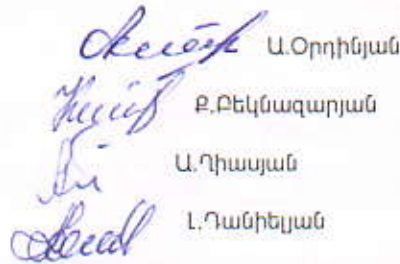 Ա.Օրդինյան
Ք.Բեկնազարյան
Ա.Ղիասյան
Լ.Դանիելյան